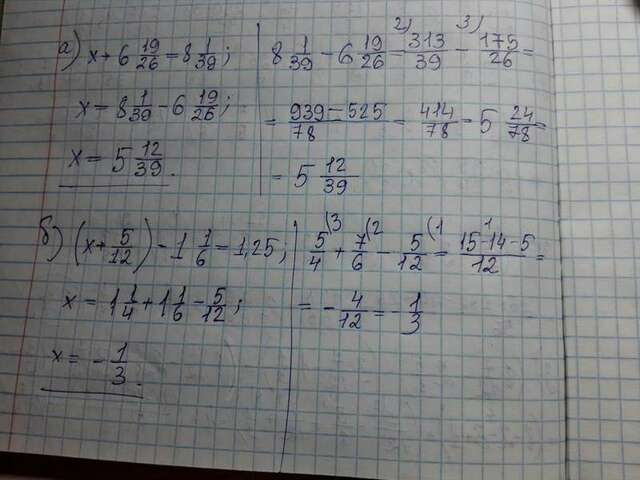 а) x + 6 19/26 = 8 1/39;
x = 8 1/39 - 6 19/26;
x = 5 12/39.
8 1/39 - 6 19/26 = 2) 313/39 - 3) 175/26 =
= 939 - 525/78 = 414/78 = 5 24/78 =
= 5 12/39
б) (x + 5/12) - 1 1/6 = 1,25;
x = 1 1/4 + 1 1/6 - 5/12;
x = - 1/3.
5/4 (3 + 7/6 (2 - 5/12 (1 = 15 - 14 - 5/12 =
= - 4/12 = - 1/3